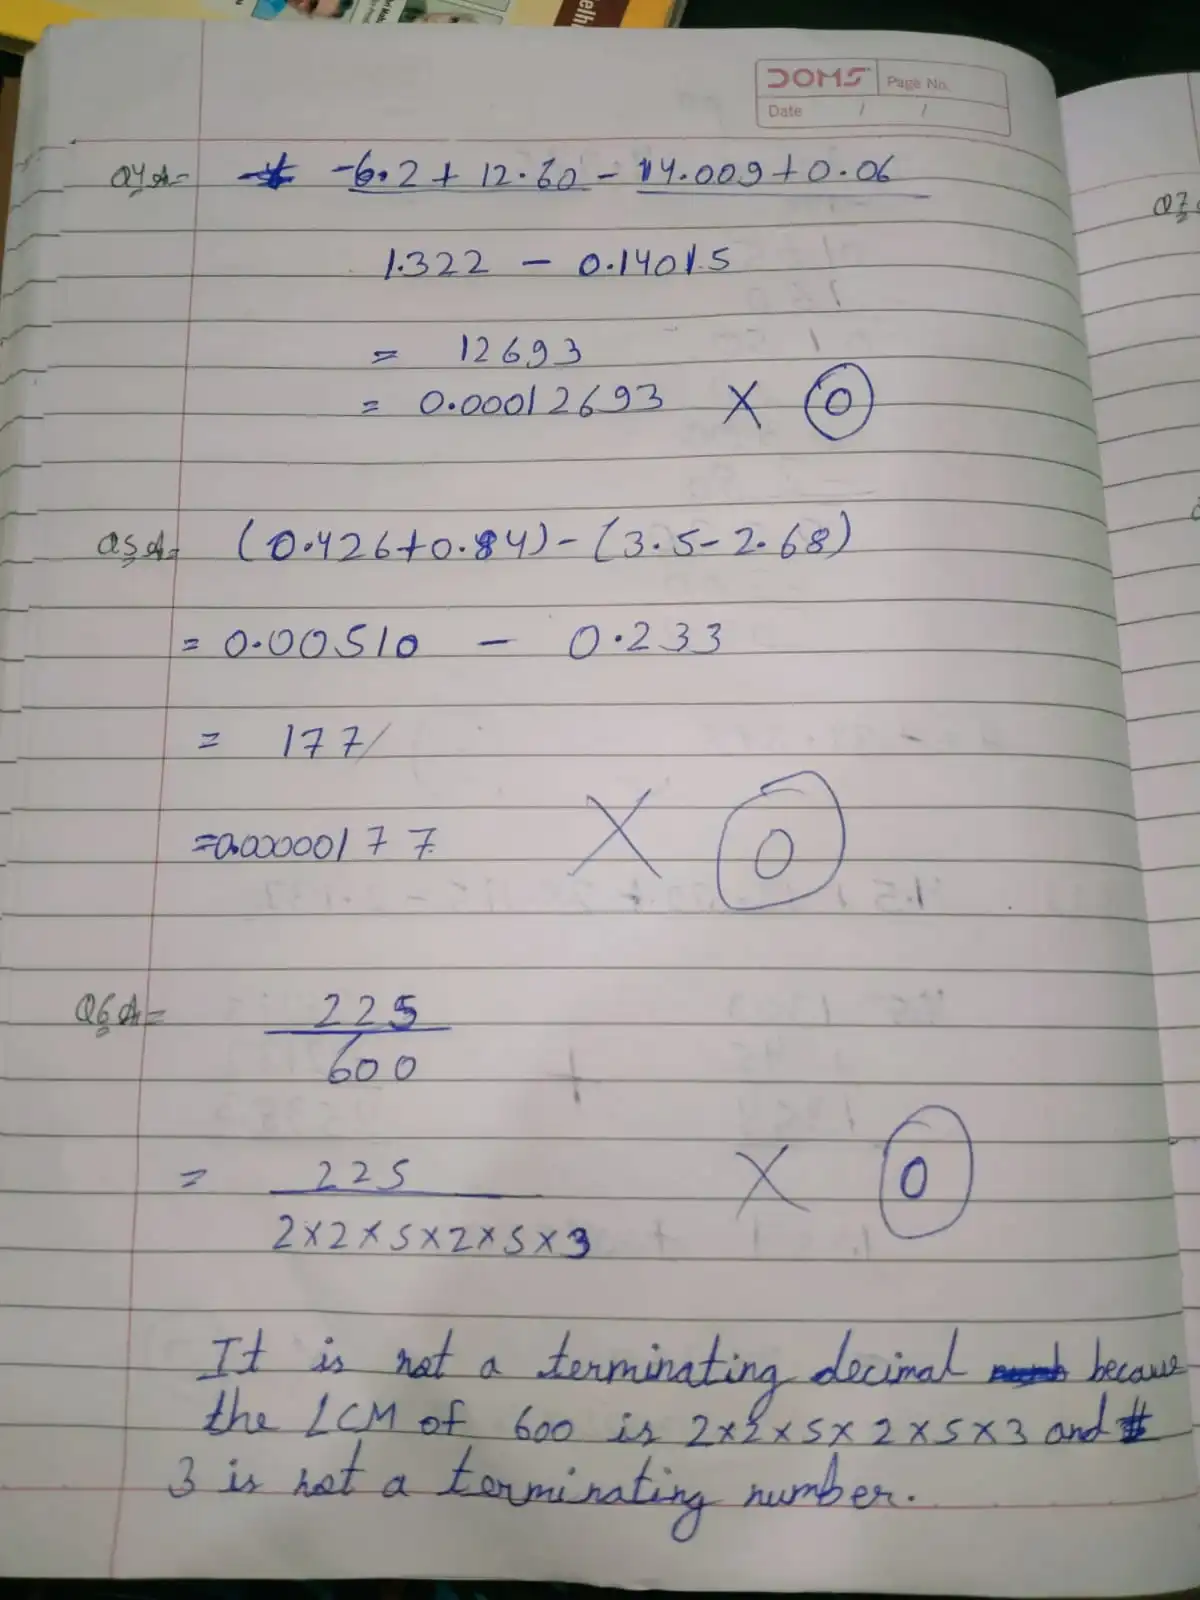 DOMS Page No.
Date / /
Q4 A= -6.2 + 12.60 - 14.009 + 0.06
1.322 - 0.1401.5
= 12693
= 0.00012693 X 0
Q5 A= (0.426+0.84) - (3.5-2.68)
= 0.00510 - 0.233
= 177/
=0.00000177 X 0
Q6 A= 225
600
= 225 X 0
2×2×5×2×5×3
It is not a terminating decimal because
the LCM of 600 is 2×2×5×2×5×3 and
3 is not a terminating number.
Q7